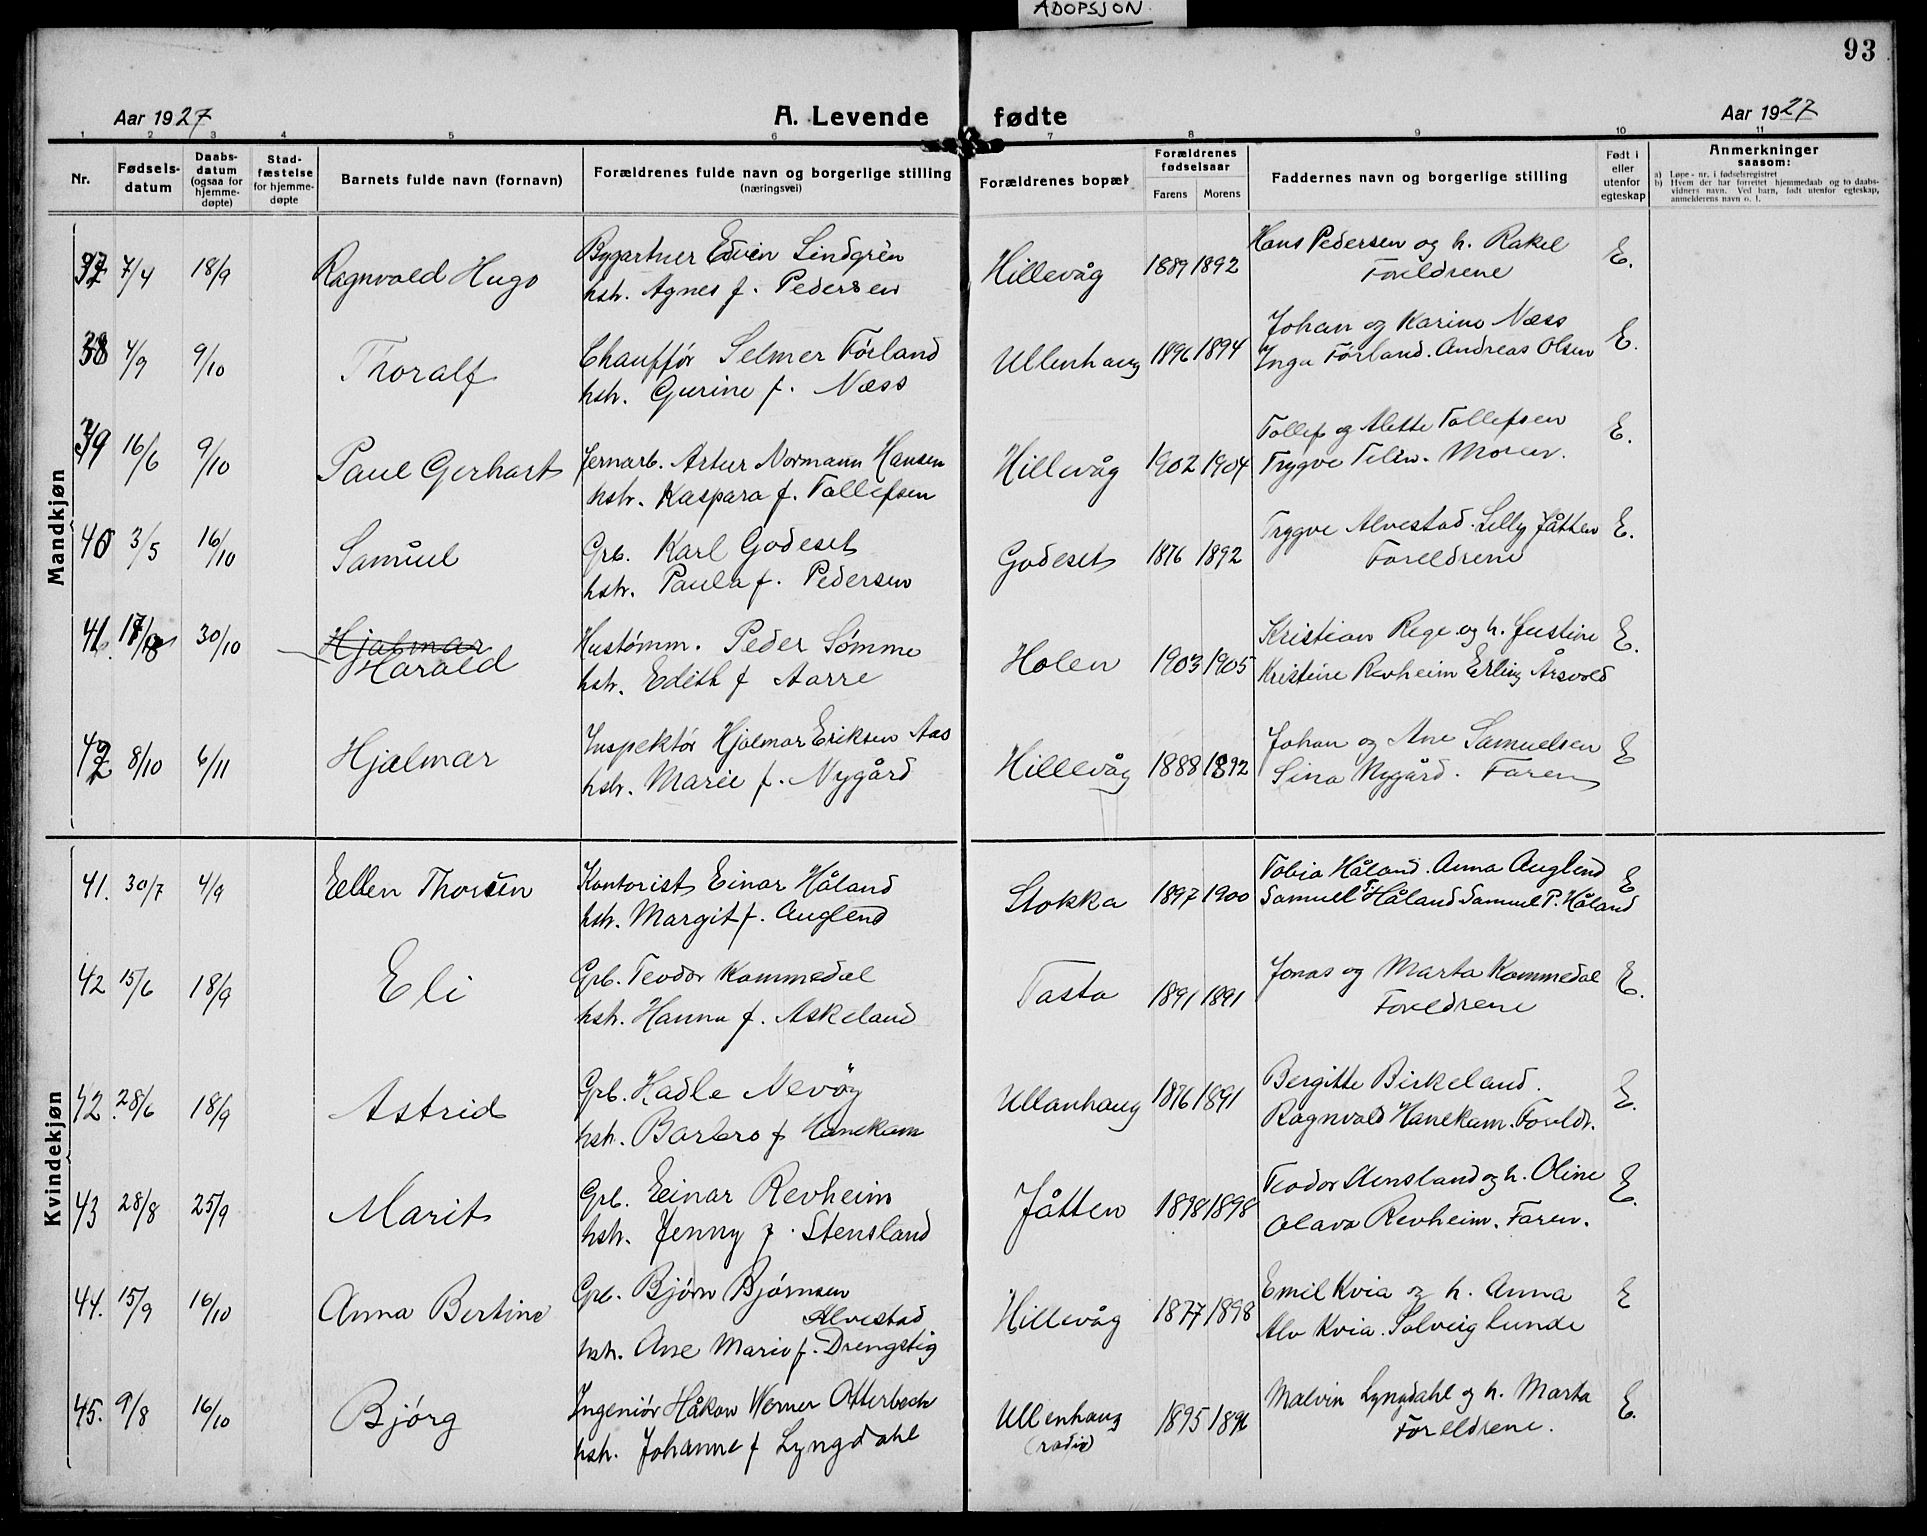 ADOPSJON.
93
Aar 1927 A. Levende fødte Aar 1927
1 2 3 4 5 6 7 8 9 10 11
Nr. Fødsels-datum Daabs-datum (ogsaa for hjemme-døpte) Stad-fæstelse for hjemme-døpte Barnets fulde navn (fornavn) Forældrenes fulde navn og borgerlige stilling (næringsvei) Forældrenes bopæl Forældrenes fødselsaar Farens Morens Faddernes navn og borgerlige stilling Født i eller utenfor egteskap Anmerkninger saasom:
a) Løpe-nr. i fødselsregistret
b) Hvem der har forrettet hjemmedaab og to daabs-vidners navn. Ved barn, født utenfor egteskap, anmelderens navn o. l.
Mandkjøn
37 7/4 18/9 Ragnvald Hugo Bygartner Edvin Lindgrèn Hillevåg 1889 1892 Hans Pedersen og h. Rakel E.
hstr. Agnes f. Pedersen Foreldrene
38 4/9 9/10 Thoralf Chauffør Selmer Førland Ullenhaug 1896 1894 Johan og Karine Næss E.
hstr. Gurine f. Næss Inga Førland. Andreas Olsen
39 16/6 9/10 Paul Gerhart Jernarb. Artur Normann Hansen Hillevåg 1902 1904 Tollef og Alette Tollefsen E.
hstr. Kaspara f. Tollefsen Trygve Telin. Moren.
40 3/5 16/10 Samuel Grb. Karl Godeset Godeset 1876 1892 Trygve Alvestad. Lilly Jåtten E.
hstr. Paula f. Pedersen Foreldrene
41. 30/10 Hjalmar Harald Hustømm. Peder Sømme Holen 1903 1905 Kristian Rege og h. Justine E.
hstr. Edith f Aarre Kristine Revheim Erling Årsvold
42 8/10 6/11 Hjalmar Inspektør Hjalmar Eriksen Aas Hillevåg 1888 1892 Johan og Ane Samuelsen E
hstr. Marie f. Nygård Sina Nygård. Faren
Kvindekjøn
41. 30/7 4/9 Ellen Thorsen Kontorist Einar Håland Stokka 1897 1900 Tobia Håland. Anna Auglend E
hstr. Margit f. Auglend Samuel T. Håland Samuel P. Håland
42 15/6 18/9 Eli Grb. Teodor Kommedal Tasta 1891 1891 Jonas og Marta Kommedal E.
hstr. Hanna f. Askeland Foreldrene
42. 28/6 18/9 Astrid Grb. Hadle Nevøy Ullanhaug 1876 1891 Bergitte Birkeland. E.
hstr. Barbro f Hanekam Ragnvald Hanekam. Foreldr.
43 28/8 25/9 Marit Grb. Einar Revheim Jåtten 1898 1898 Teodor Stensland og h. Oline E.
hstr. Jenny f. Stensland Olava Revheim. Faren.
44. 15/9 16/10 Anna Bertine Grb. Bjørn Bjørnsen Alvestad Hillevåg 1877 1898 Emil Kvia og h. Anna E
hstr. Ane Marie f. Drengstig Alv Kvia. Solveig Lunde
45. 9/8 16/10 Bjørg Ingeniør Håkon Werner Otterbech Ullenhaug (radio) 1895 1896 Malvin Lyngdahl og h. Marta E.
hstr. Johanne f Lyngdahl Foreldrene.